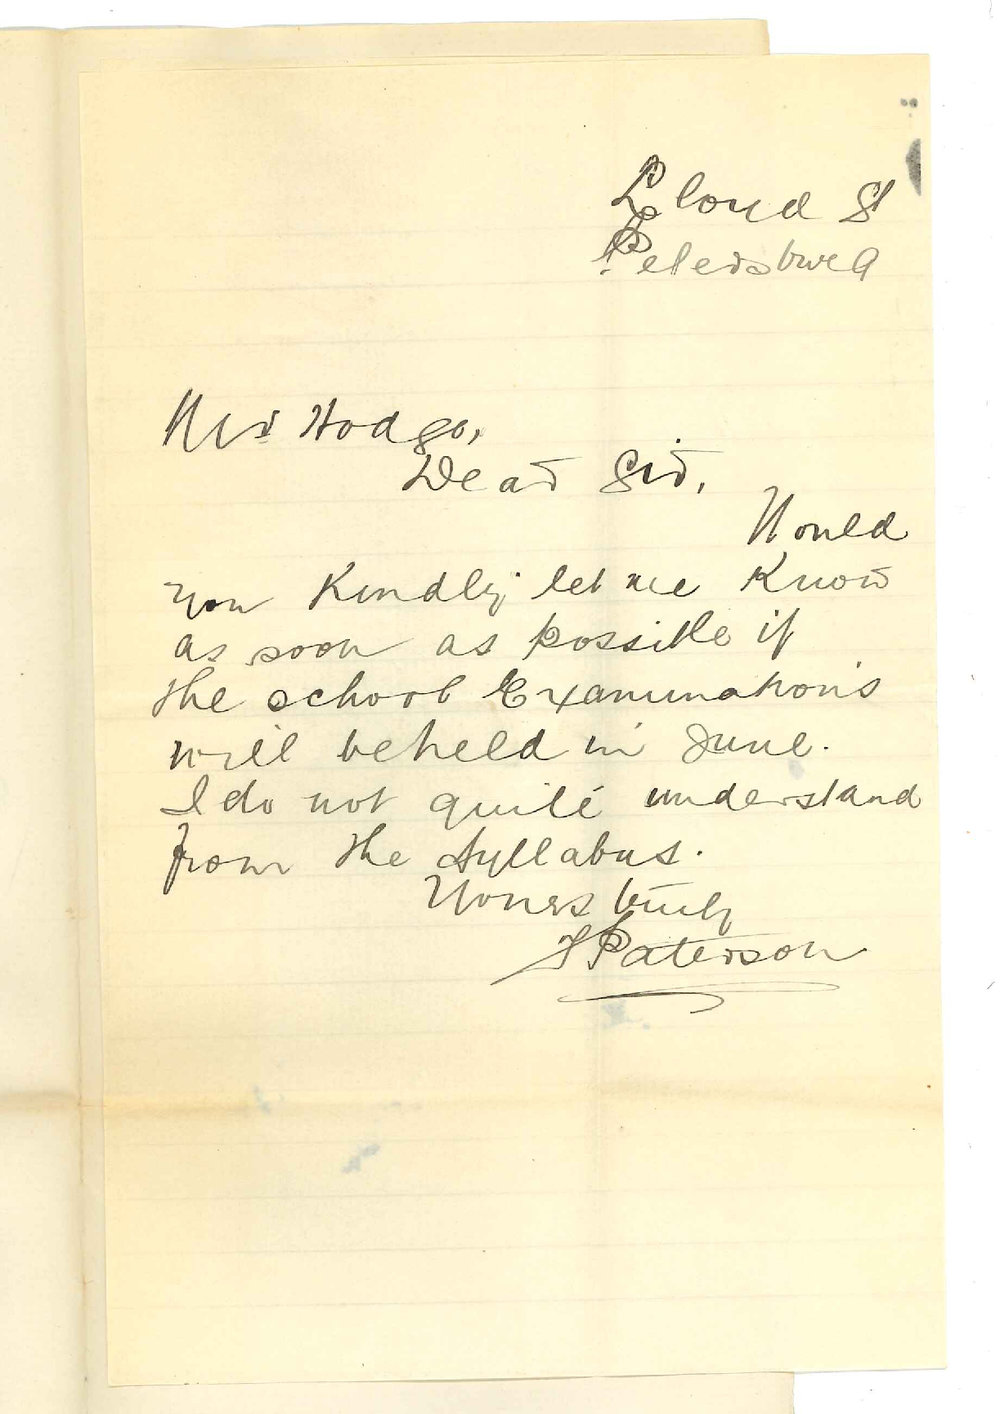 Cloud St
Petersburg
Mr Hodge,
Dear Sir,
Would
you Kindly let me Know
as soon as possible if
the school Examinations
will be held in June.
I do not quite understand
from the Syllabus.
Yours truly
Paterson